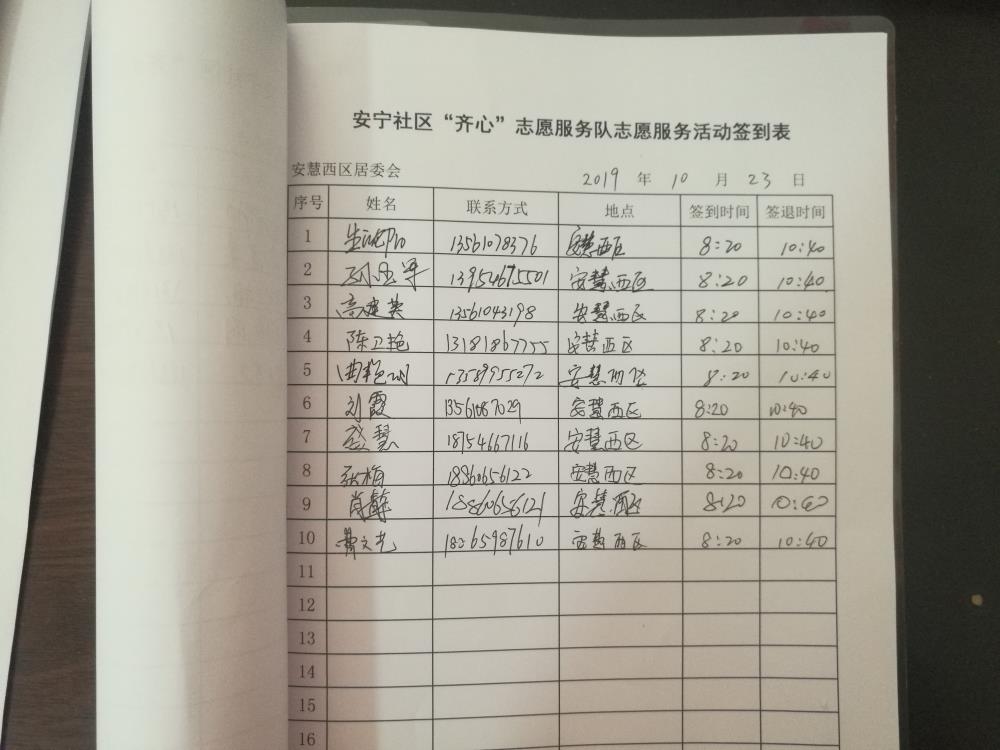 安宁社区“齐心”志愿服务队志愿服务活动签到表
安慧西区居委会 2019 年 10 月 23 日
序号 姓名 联系方式 地点 签到时间 签退时间
1 13561078376 安慧西区 8:20 10:40
2 13954675501 安慧西区 8:20 10:40
3 高建英 13561043198 安慧西区 8:20 10:40
4 陈卫艳 13181867755 安慧西区 8:20 10:40
5 曲艳明 13589955272 安慧西区 8:20 10:40
6 刘霞 13561087029 安慧西区 8:20 10:40
7 盛慧 18754667116 安慧西区 8:20 10:40
8 张梅 18860656122 安慧西区 8:20 10:40
9 肖敏 18860656121 安慧西区 8:20 10:40
10 18065987610 安慧西区 8:20 10:40
11
12
13
14
15
16